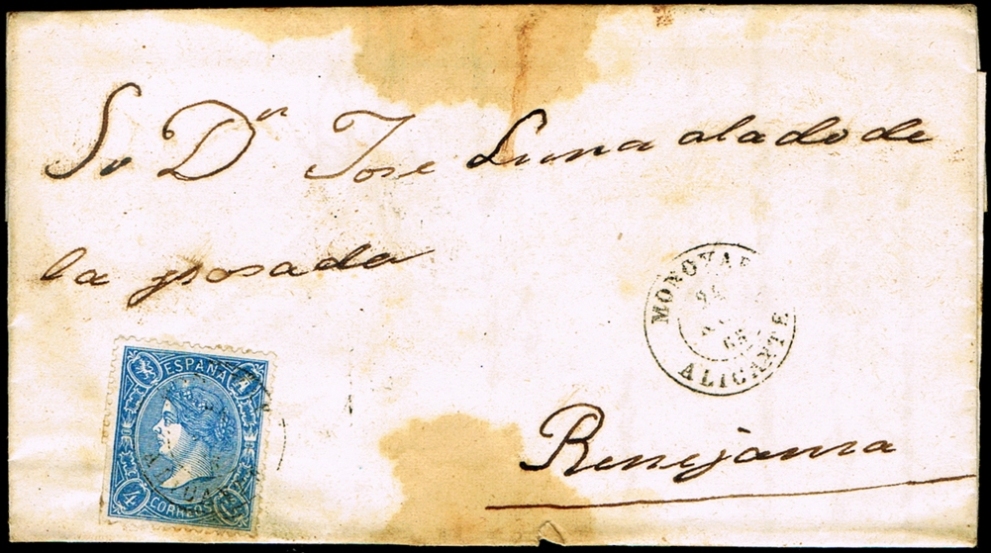 Sr Dn Jose Luna al lado de
la posada
MONOVAR
24
65
ALICANTE
ESPAÑA
4
CORREOS
Benejama